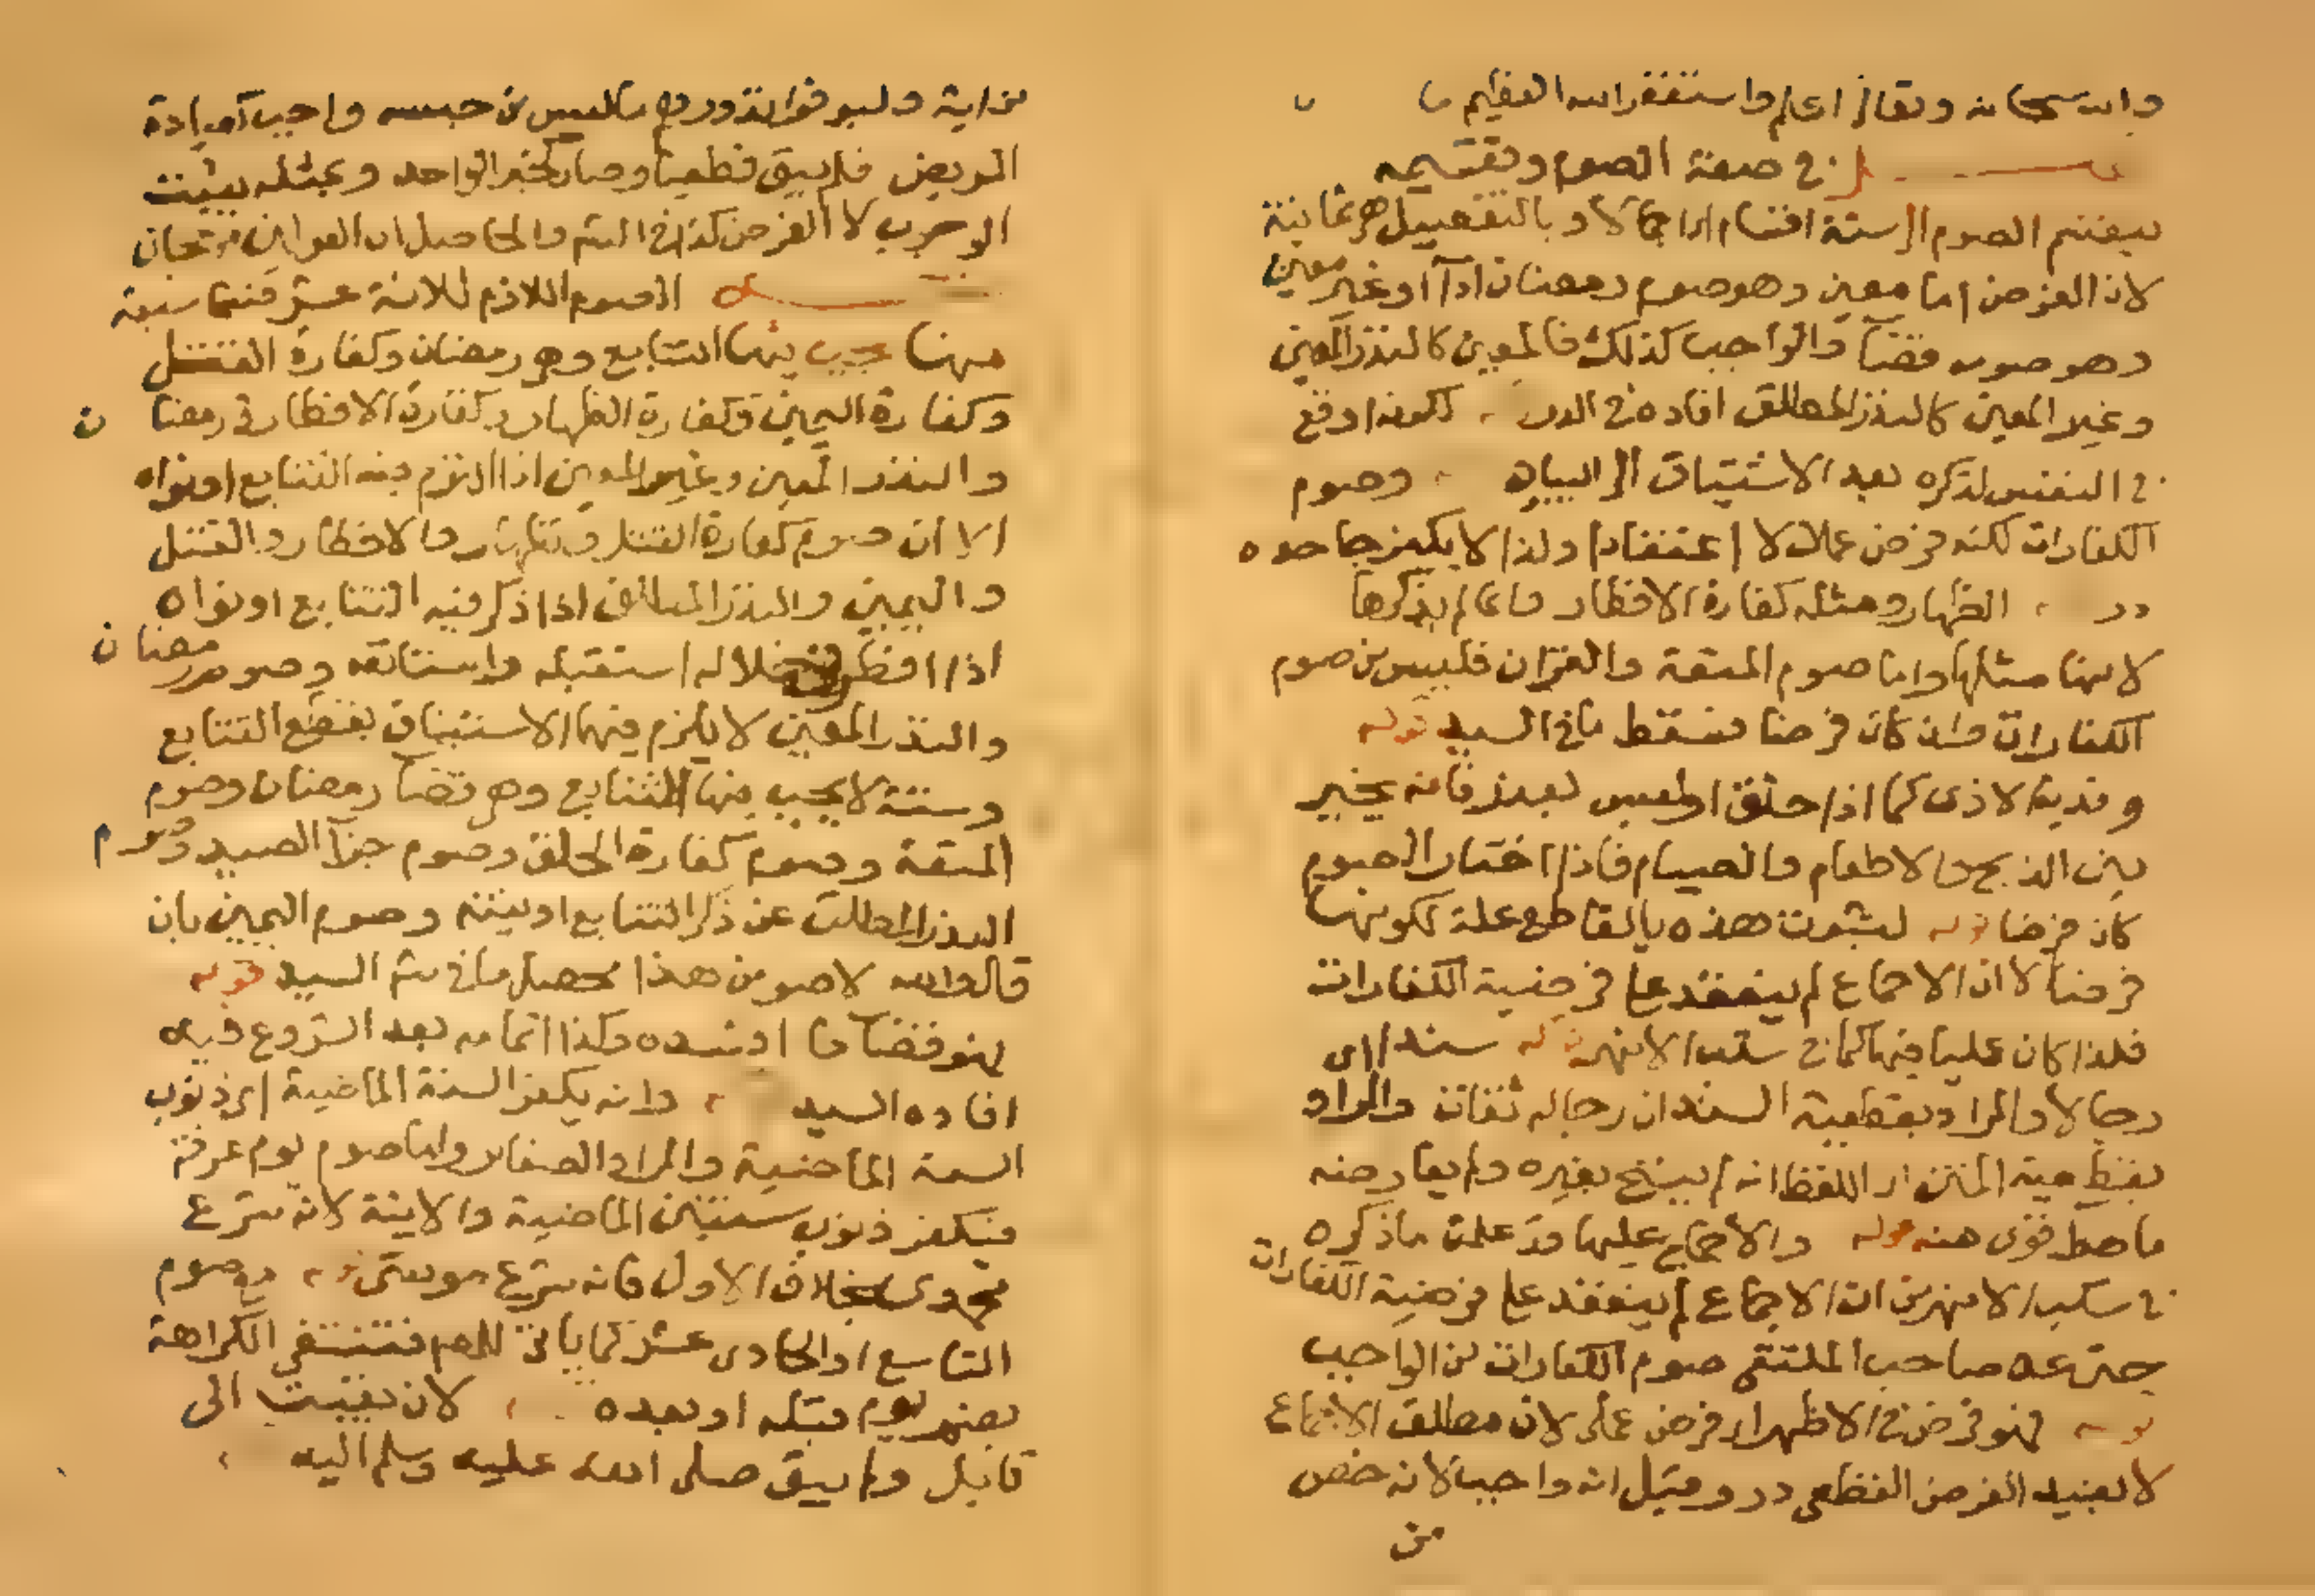 والله سبحانه وتعالى اعلم واستغفر الله العظيم
في صفة الصوم وتقسيمه
ينقسم الصوم الى ستة اقسام اي اجمالا وبالتفصيل هي ثمانية
لان الفرض اما معين وهو صوم رمضان اداآ او غير معين
وهو صومه قضآ والواجب كذلك فالمعين كالنذر المعين
وغير المعين كالنذر المطلق افاده في الدرر لكونه اوقع
في النفس لذكره بعد الاشتياق الى البيان وصوم
الكفارات لكنه فرض عملا لا اعتقادا ولذا لا يكفر جاحده
در الظهار ومثله كفارة الافطار وانما لم يذكرها
لانها مثلها واما صوم المتعة والقران فليس من صوم
الكفارات وان كان فرضا فسقط ما في السيد قوله
وفدية الاذى كما اذا حلق او لبس بعذر فانه يخير
بين الذبح والاطعام والصيام فاذا اختار الصوم
كان فرضا قوله لثبوت هذه بالقاطع علة لكونها
فرضا لان الاجماع لم ينعقد على فرضية الكفارات
فلذا كان عمليا فيها كما في سكب الانهر قوله سندا اي
رجالا والمراد بقطعية السند ان رجاله ثقات والمراد
بقطعية المتن اي اللفظ انه لم ينسخ بغيره ولم يعارضه
ما هو اقوى منه قوله والاجماع عليها قد علمت ما ذكره
في سكب الانهر من ان الاجماع لم ينعقد على فرضية الكفارات
حتى عد صاحب الملتقى صوم الكفارات من الواجب
قوله فهو فرض في الاظهر اي فرض عملي لان مطلق الاجماع
لا يفيد الفرض القطعي در وقيل انه واجب لانه خص
من
من اية وليوفوا نذورهم ما ليس من جنسه واجب كعيادة
المريض فلم يبق قطعيا وصار كخبر الواحد وبمثله يثبت
الوجوب لا الفرض كذا في الشرح والحاصل ان القولين مرجحان
الصوم اللازم ثلاثة عشر قسما سبعة
منها يجب فيها التتابع وهي رمضان وكفارة القتل
وكفارة اليمين وكفارة الظهار وكفارة الافطار في رمضان
والنذر المعين وغير المعين اذا التزم فيه التتابع او نواه
الا ان صوم كفارة القتل والظهار والافطار والقتل
واليمين والنذر المطلق اذا ذكر فيه التتابع او نواه
اذا افطر في خلاله استقبله واستانفه وصوم رمضان
والنذر المعين لا يلزم فيها الاستيناف بقطع التتابع
وستة لا يجب فيها التتابع وهي قضآ رمضان وصوم
المتعة وصوم كفارة الحلق وصوم جزآ الصيد وصوم
النذر المطلق عن ذكر التتابع او نيته وصوم اليمين بان
قال والله لاصومن هذا محصل ما في شرح السيد قوله
فهو قضآ ما افسده وكذا اتمامه بعد الشروع فيه
افاده السيد وانه يكفر السنة الماضية اي ذنوب
السنة الماضية والمراد الصغاير واما صوم يوم عرفة
فيكفر ذنوب سنتين الماضية والاتية لانه شرع
محمدي بخلاف الاول فانه شرع موسى قوله مع صوم
التاسع او الحادي عشر كما ياتي للمص فتنتفي الكراهة
بضم يوم قبله او بعده لان بقيت الى
قابل ولم يبق صلى الله عليه وسلم اليه